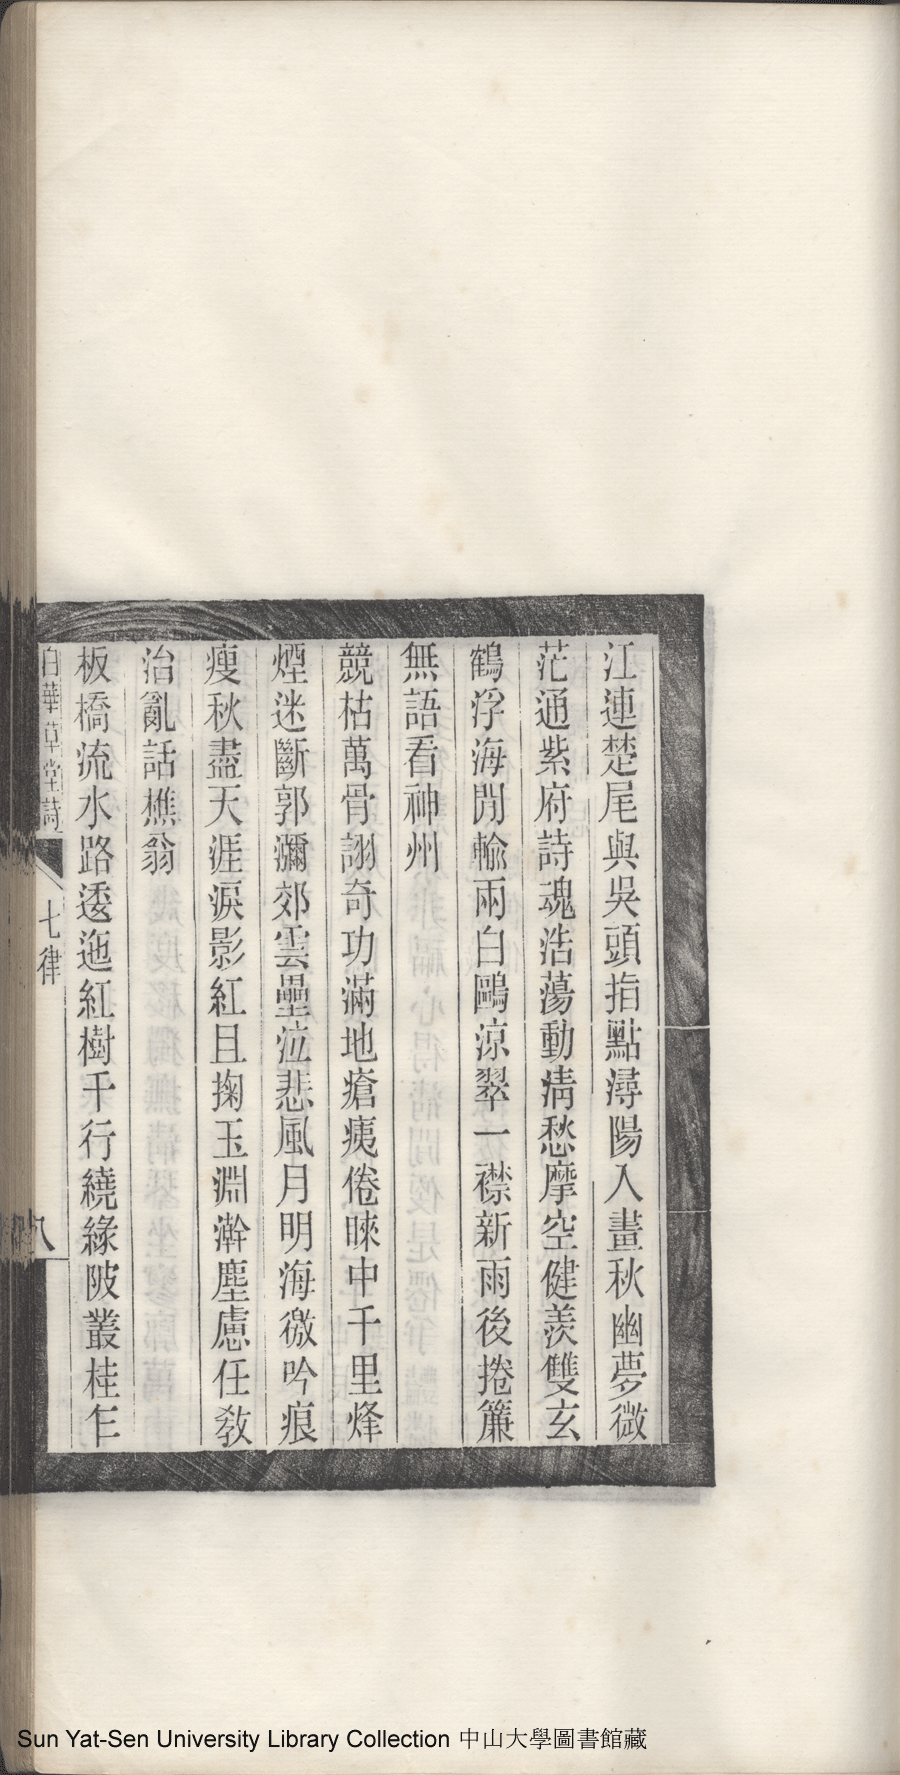 江連楚尾與吳頭指點潯陽入畫秋幽夢微
茫通紫府詩魂浩蕩動清愁摩空健羨雙玄
鶴浮海閒輸兩白鷗涼翠一襟新雨後捲簾
無語看神州
競枯萬骨詡奇功滿地瘡痍倦睞中千里烽
煙迷斷郭瀰郊雲壘泣悲風月明海徼吟痕
瘦秋盡天涯淚影紅且掬玉淵澣塵慮任教
治亂話樵翁
板橋流水路逶迤紅樹千行繞綠陂叢桂乍
白華草堂詩
七律
八
Sun Yat-Sen University Library Collection 中山大學圖書館藏